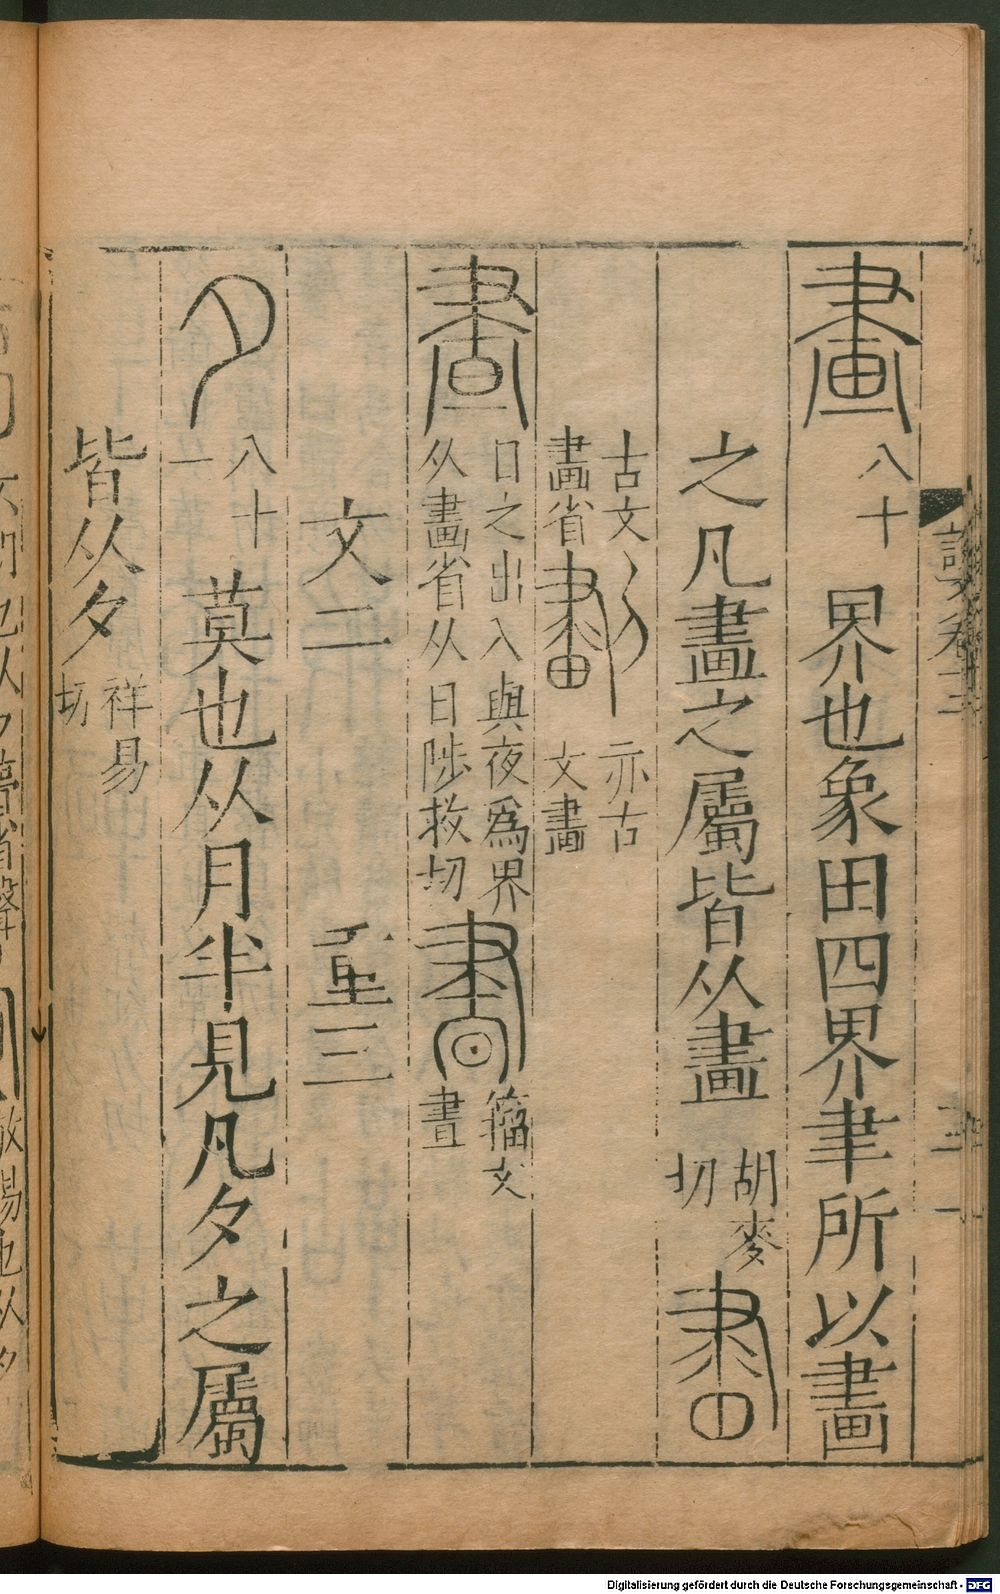 畫 八十 界也象田四界聿所以畫
之凡畫之屬皆从畫 胡麥切
古文畫省 亦古文畫
晝 日之出入與夜爲界从畫省从日陟救切 籒文晝
文二 重三
夕 八十一 莫也从月半見凡夕之屬
皆从夕 祥易切
Digitalisierung gefördert durch die Deutsche Forschungsgemeinschaft - DFG